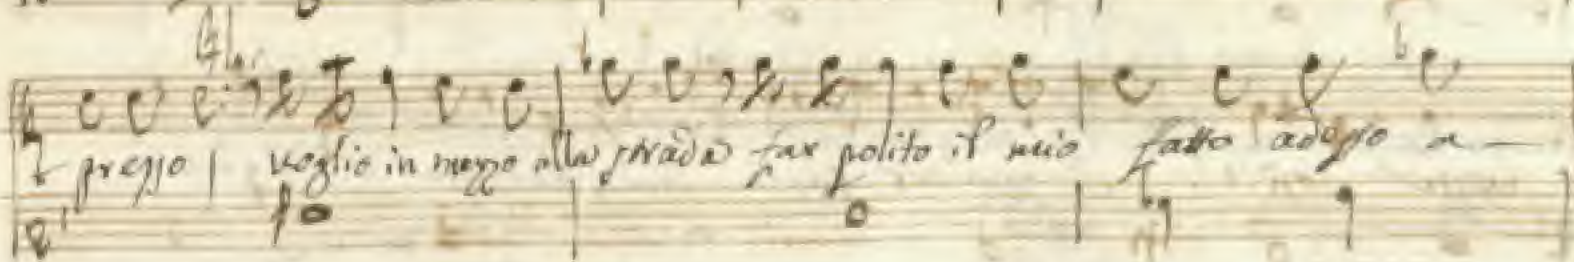 presso | voglio in mezzo alla strada far polito il mio fatto adesso a